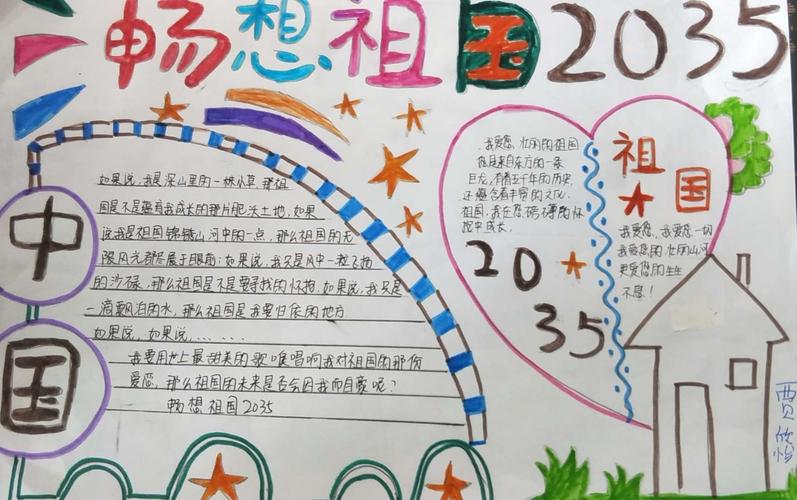 畅想祖国2035
中国
如果说,我是深山里的一株小草,那祖
国是不是蕴育我成长的那片肥沃土地,如果
说我是祖国锦绣山河中的一点,那么祖国的无
限风光都尽展于眼前;如果说,我只是风中一粒飞扬
的沙砾,那么祖国是不是要寻找的怀抱,如果说,我只是
一滴要风泊的水,那么祖国是我要归依的地方
如果说,如果说,......
我要用世上最甜美的歌喉唱响我对祖国的那份
爱恋,那么祖国的未来是否会因我而自豪呢?
畅想祖国2035
我爱您,壮阔的祖国
您是来自东方的一条
巨龙,有着五千年的历史,
还蕴含着丰富的文化
祖国,我在您磅礴的怀
抱中成长。
20
35
祖
国
我爱您、我爱您一切
我爱您的壮阔山河
更爱您的生生
不息!
贾欣怡